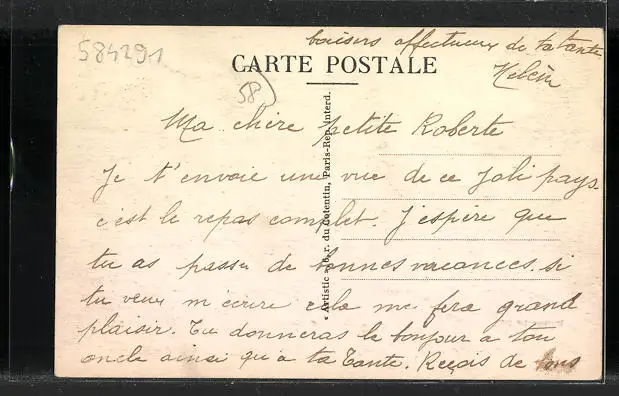 584291
baisers affectueux de ta tante
CARTE POSTALE
58
Ma chère petite Roberte
Je t'envoie une vue de ce joli pays.
c'est le repas complet. J'espère que
tu as passer de bonnes vacances. si
tu veux m'écrire cela me fera grand
plaisir. Tu donneras le bonjour a ton
oncle ainsi qu'a ta tante. Reçois de tous
« Artistic » 16, r. du Cotentin, Paris-Rep. interd.